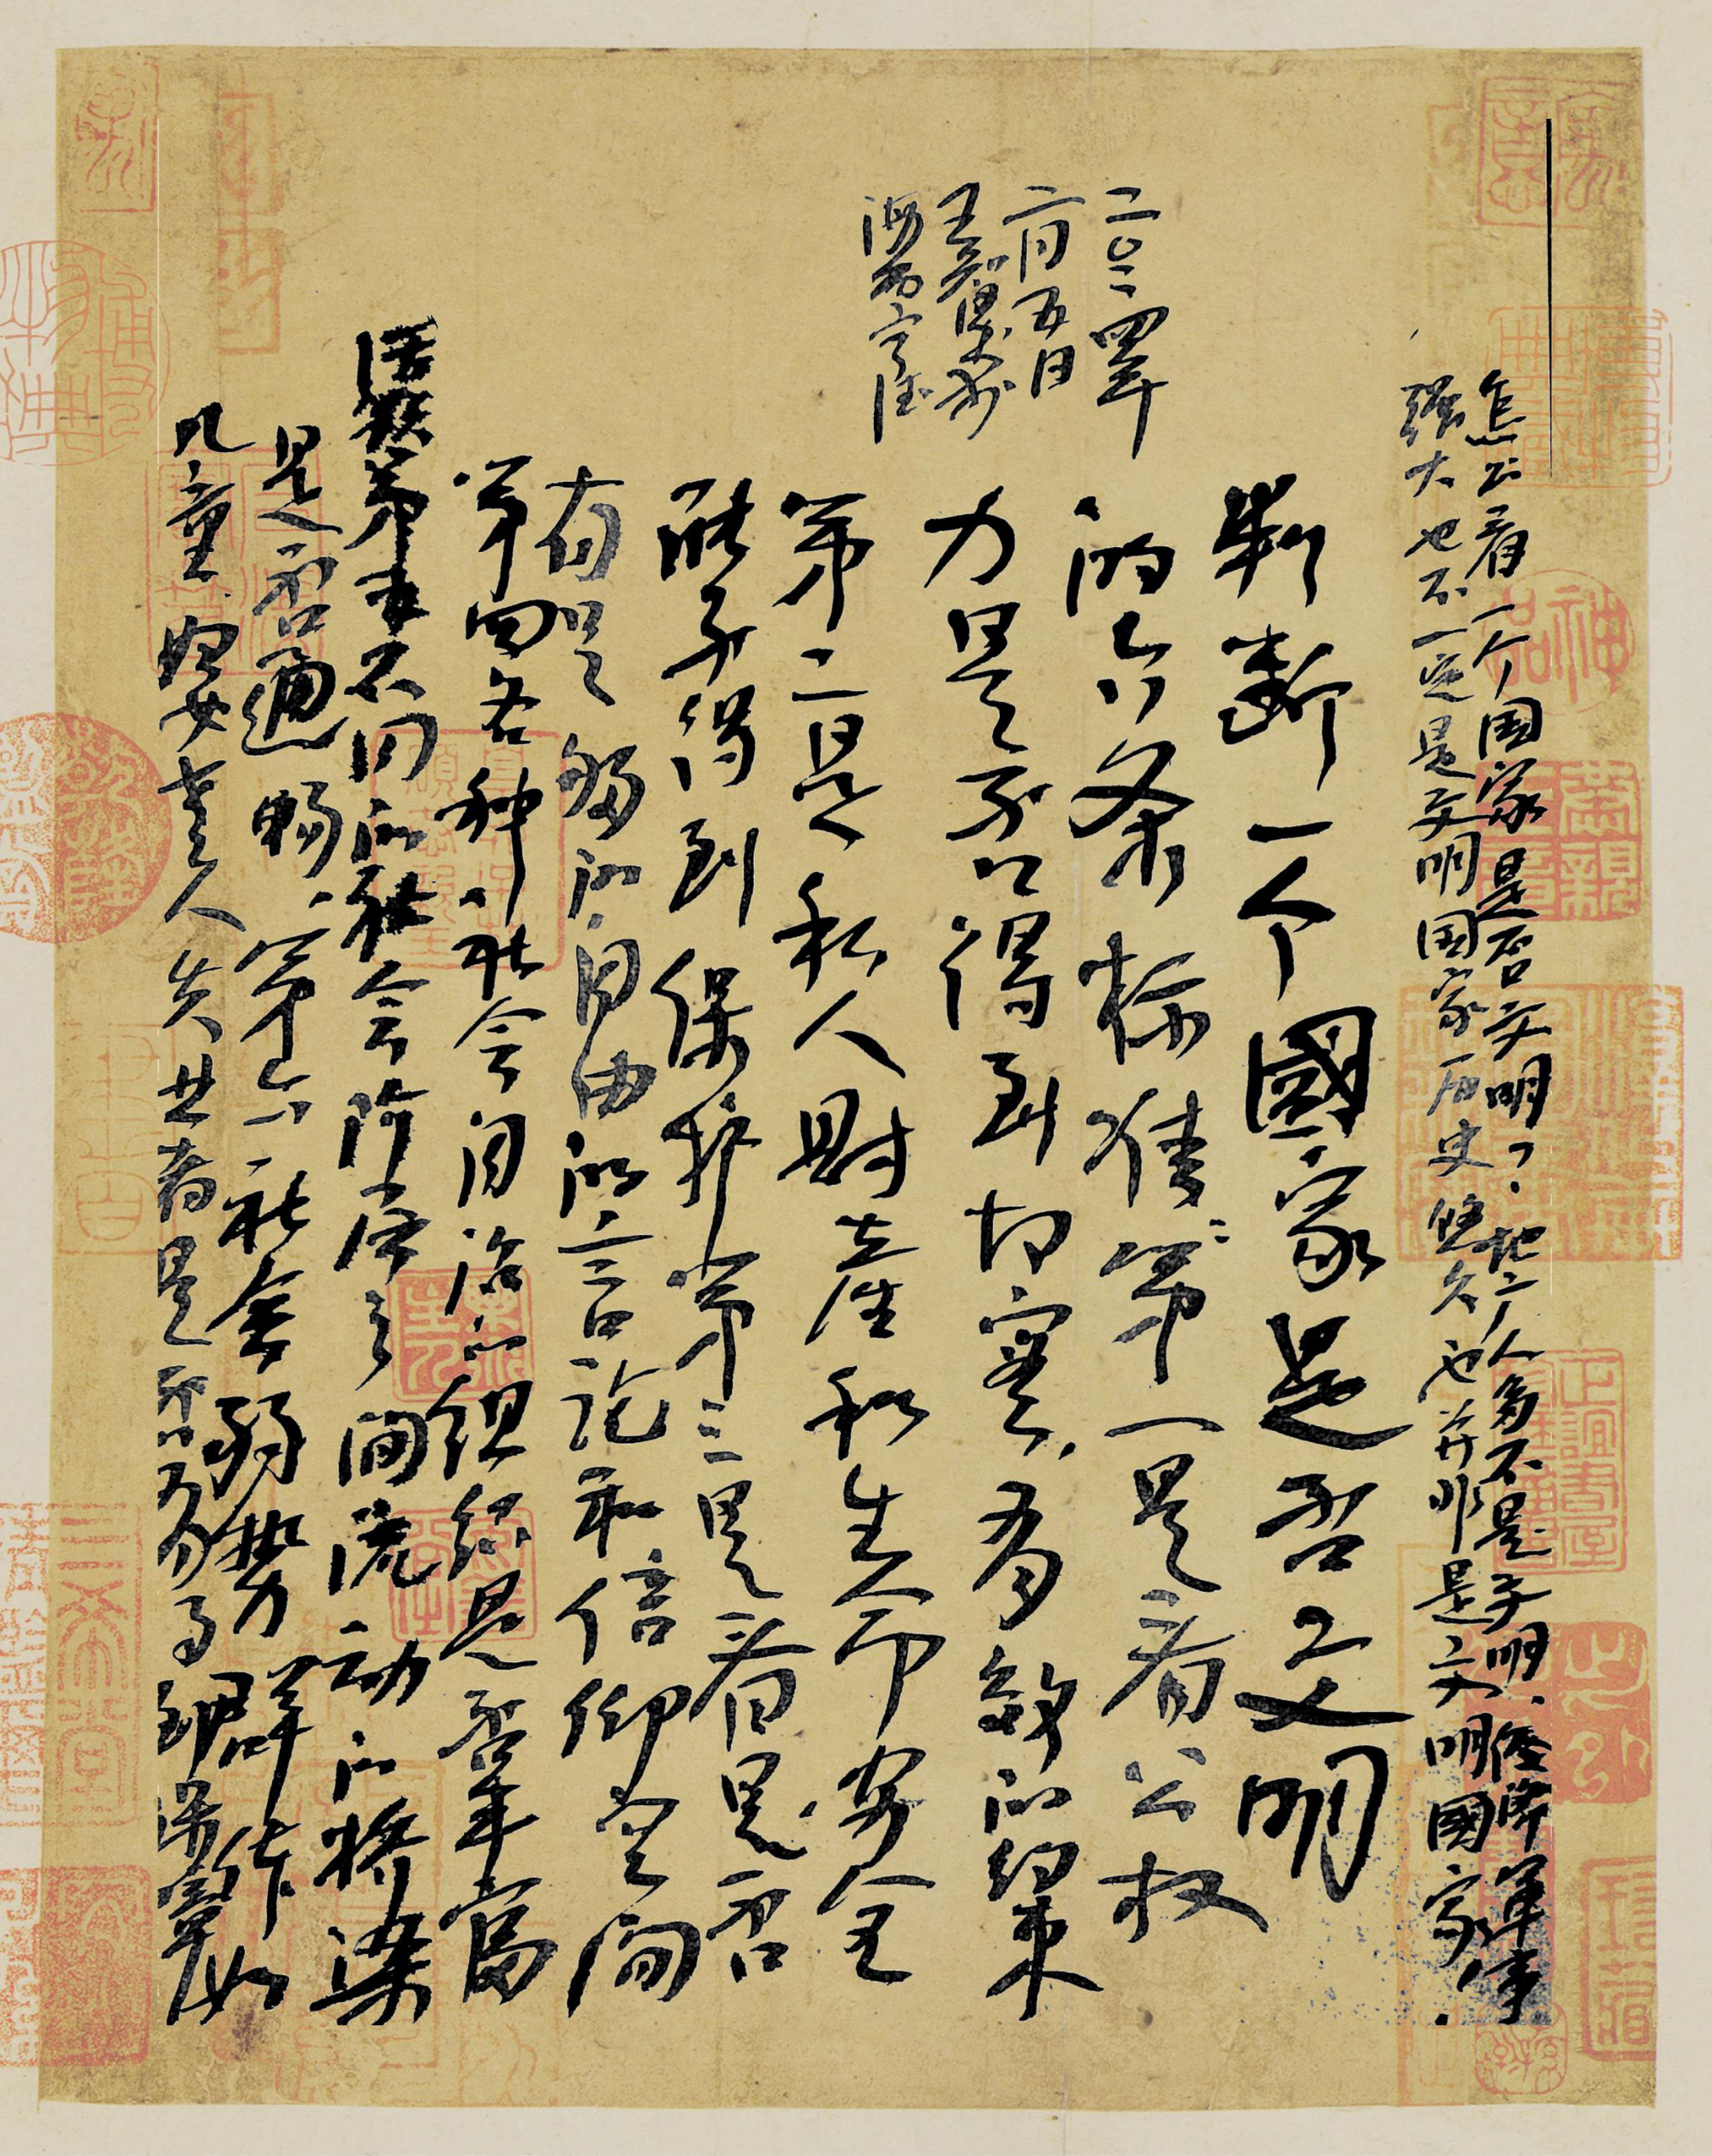 怎么看一个国家是否文明？地广人多不是文明、经济军事
强大也不一定是文明国家历史悠久也并非是文明國家.
判断一个國家是否文明
的六条标准：第一是看公权
力是否得到切实，有效的约束
第二是私人财产和生命安全
能否得到保护第三是看是否
有足够的自由的言论和信仰空间
第四各种社会自治的组织是否丰富
活跃第五不同的社会阶层之间流动的桥梁
是否通畅、第六社会弱势群体如
儿童.妇女老人失业者是否
二0二四年
二月五日